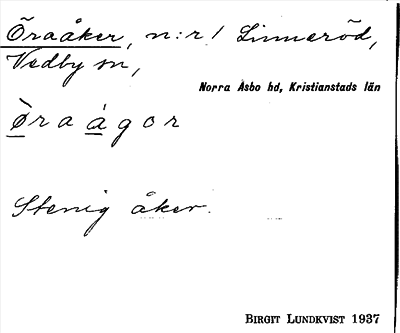 Öraåker, n:r 1 Linneröd,
Vedby sn,
Norra Åsbo hd, Kristianstads län
Øraågor
Stenig åker.
BIRGIT LUNDKVIST 1937